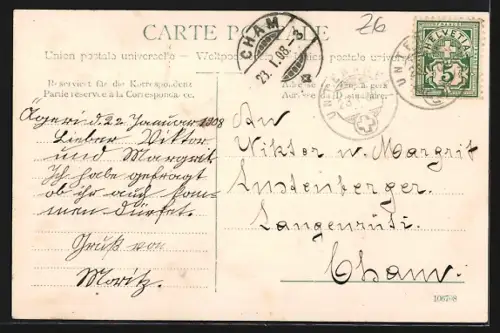 CARTE POSTALE
Z6
Union postale universelle — Weltpost
Reserviert für die Korrespondenz
Partie réservée à la Correspondance.
CHAM
23.I.08-8
UNTE
HELVETIA
5
Ägeri d. 22 Januar 1908
Lieber Viktor
und Margrit
Ich habe gefragt
ob ihr auch kom-
men dürfet.
Gruß von
Moritz.
An
Viktor u. Margrit
Lustenberger.
Langenrüti.
Cham.
106798